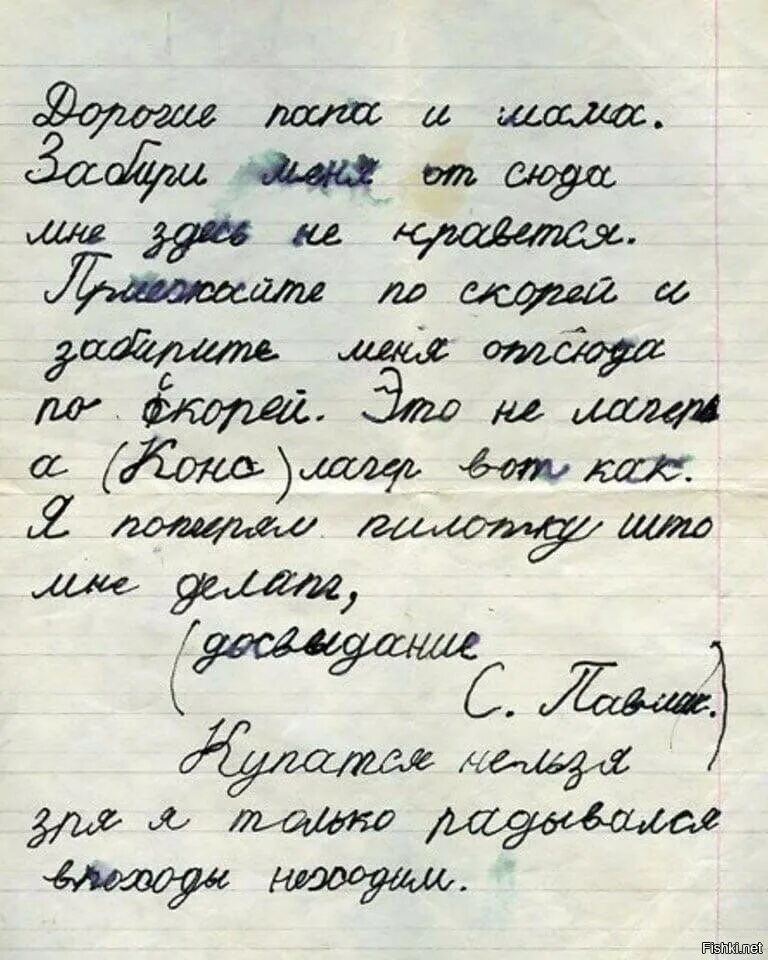 Дорогие папа и мама.
Забири меня от сюда
мне здесь не нраветься.
Приезжайте по скорей и
забирите меня отсюда
по скорей. Это не лагерь
а (Конс) лагер вот как.
Я потерял пилотку што
мне делат,
(досвыдание
С. Павлик.)
Купатся нельзя
зря я только радывался
впоходы неходим.
Fishki.net